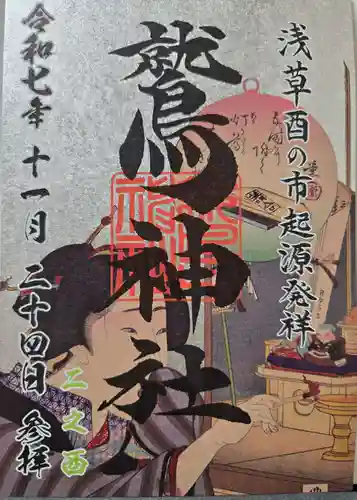 浅草酉の市起源発祥
鷲神社
令和七年 十一月 二十四日 参拝
二之酉